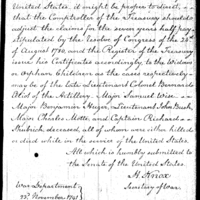 United States, it might be proper to direct—
that the Comptroller of the Treasury should
adjust the claims for the seven years half pay,
stipulated by the resolve of Congress of the 24th
of August 1780, and the Register of the Treasury
issue his Certificates accordingly to the Widows
or Orphan Children as the cases respectively
may be of the late Lieutenant Colonel Bernard
of the Artillery, Major Samuel Wise
Major Benjamin Huger, Lieutenant John Bush,
Major Charles Motte and Captain Richard
Shubrick deceased, all of whom were either killed
or died while in the service of the United States.
All which is humbly submitted to
the Senate of the United States.
H Knox
Secretary of War
War Department
November 1791